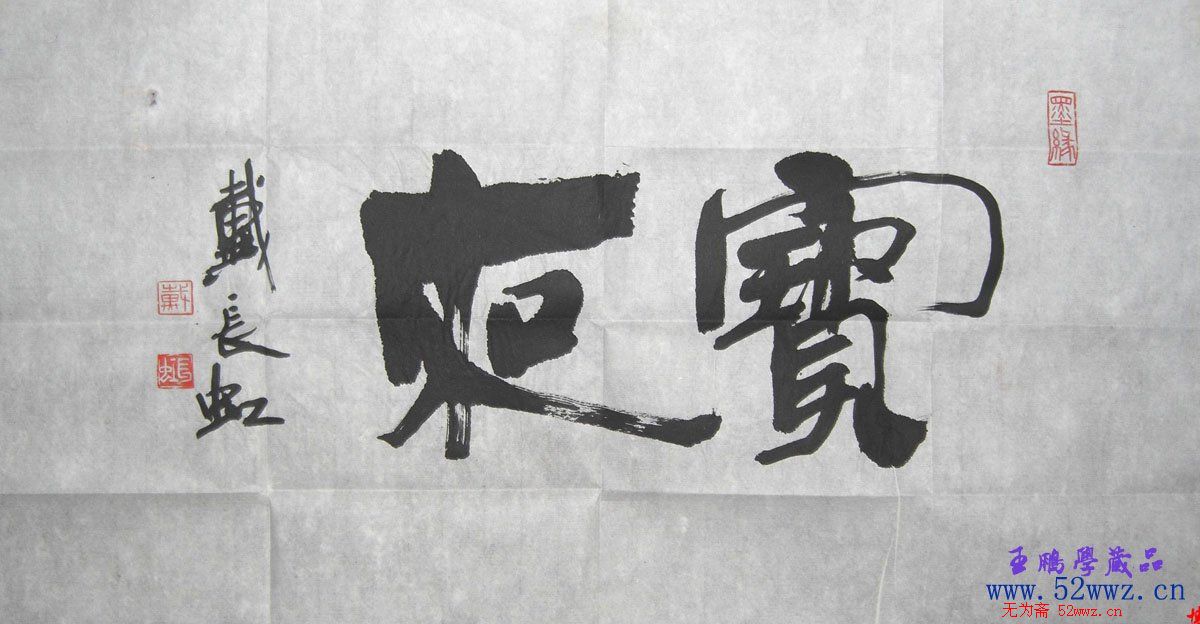 墨緣
寶
戴長虹
戴
長虹
王鵬學藏品
www.52wwz.cn
无为斋 52wwz.cn